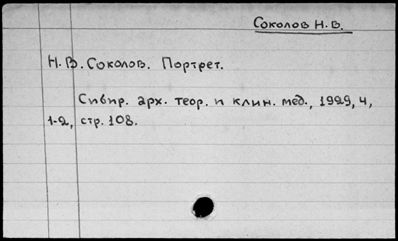 Соколов Н.В.
Н.В. Соколов. Портрет.
Сибир. арх. теор. и клин. мед., 1929, 4,
1-2, стр. 108.